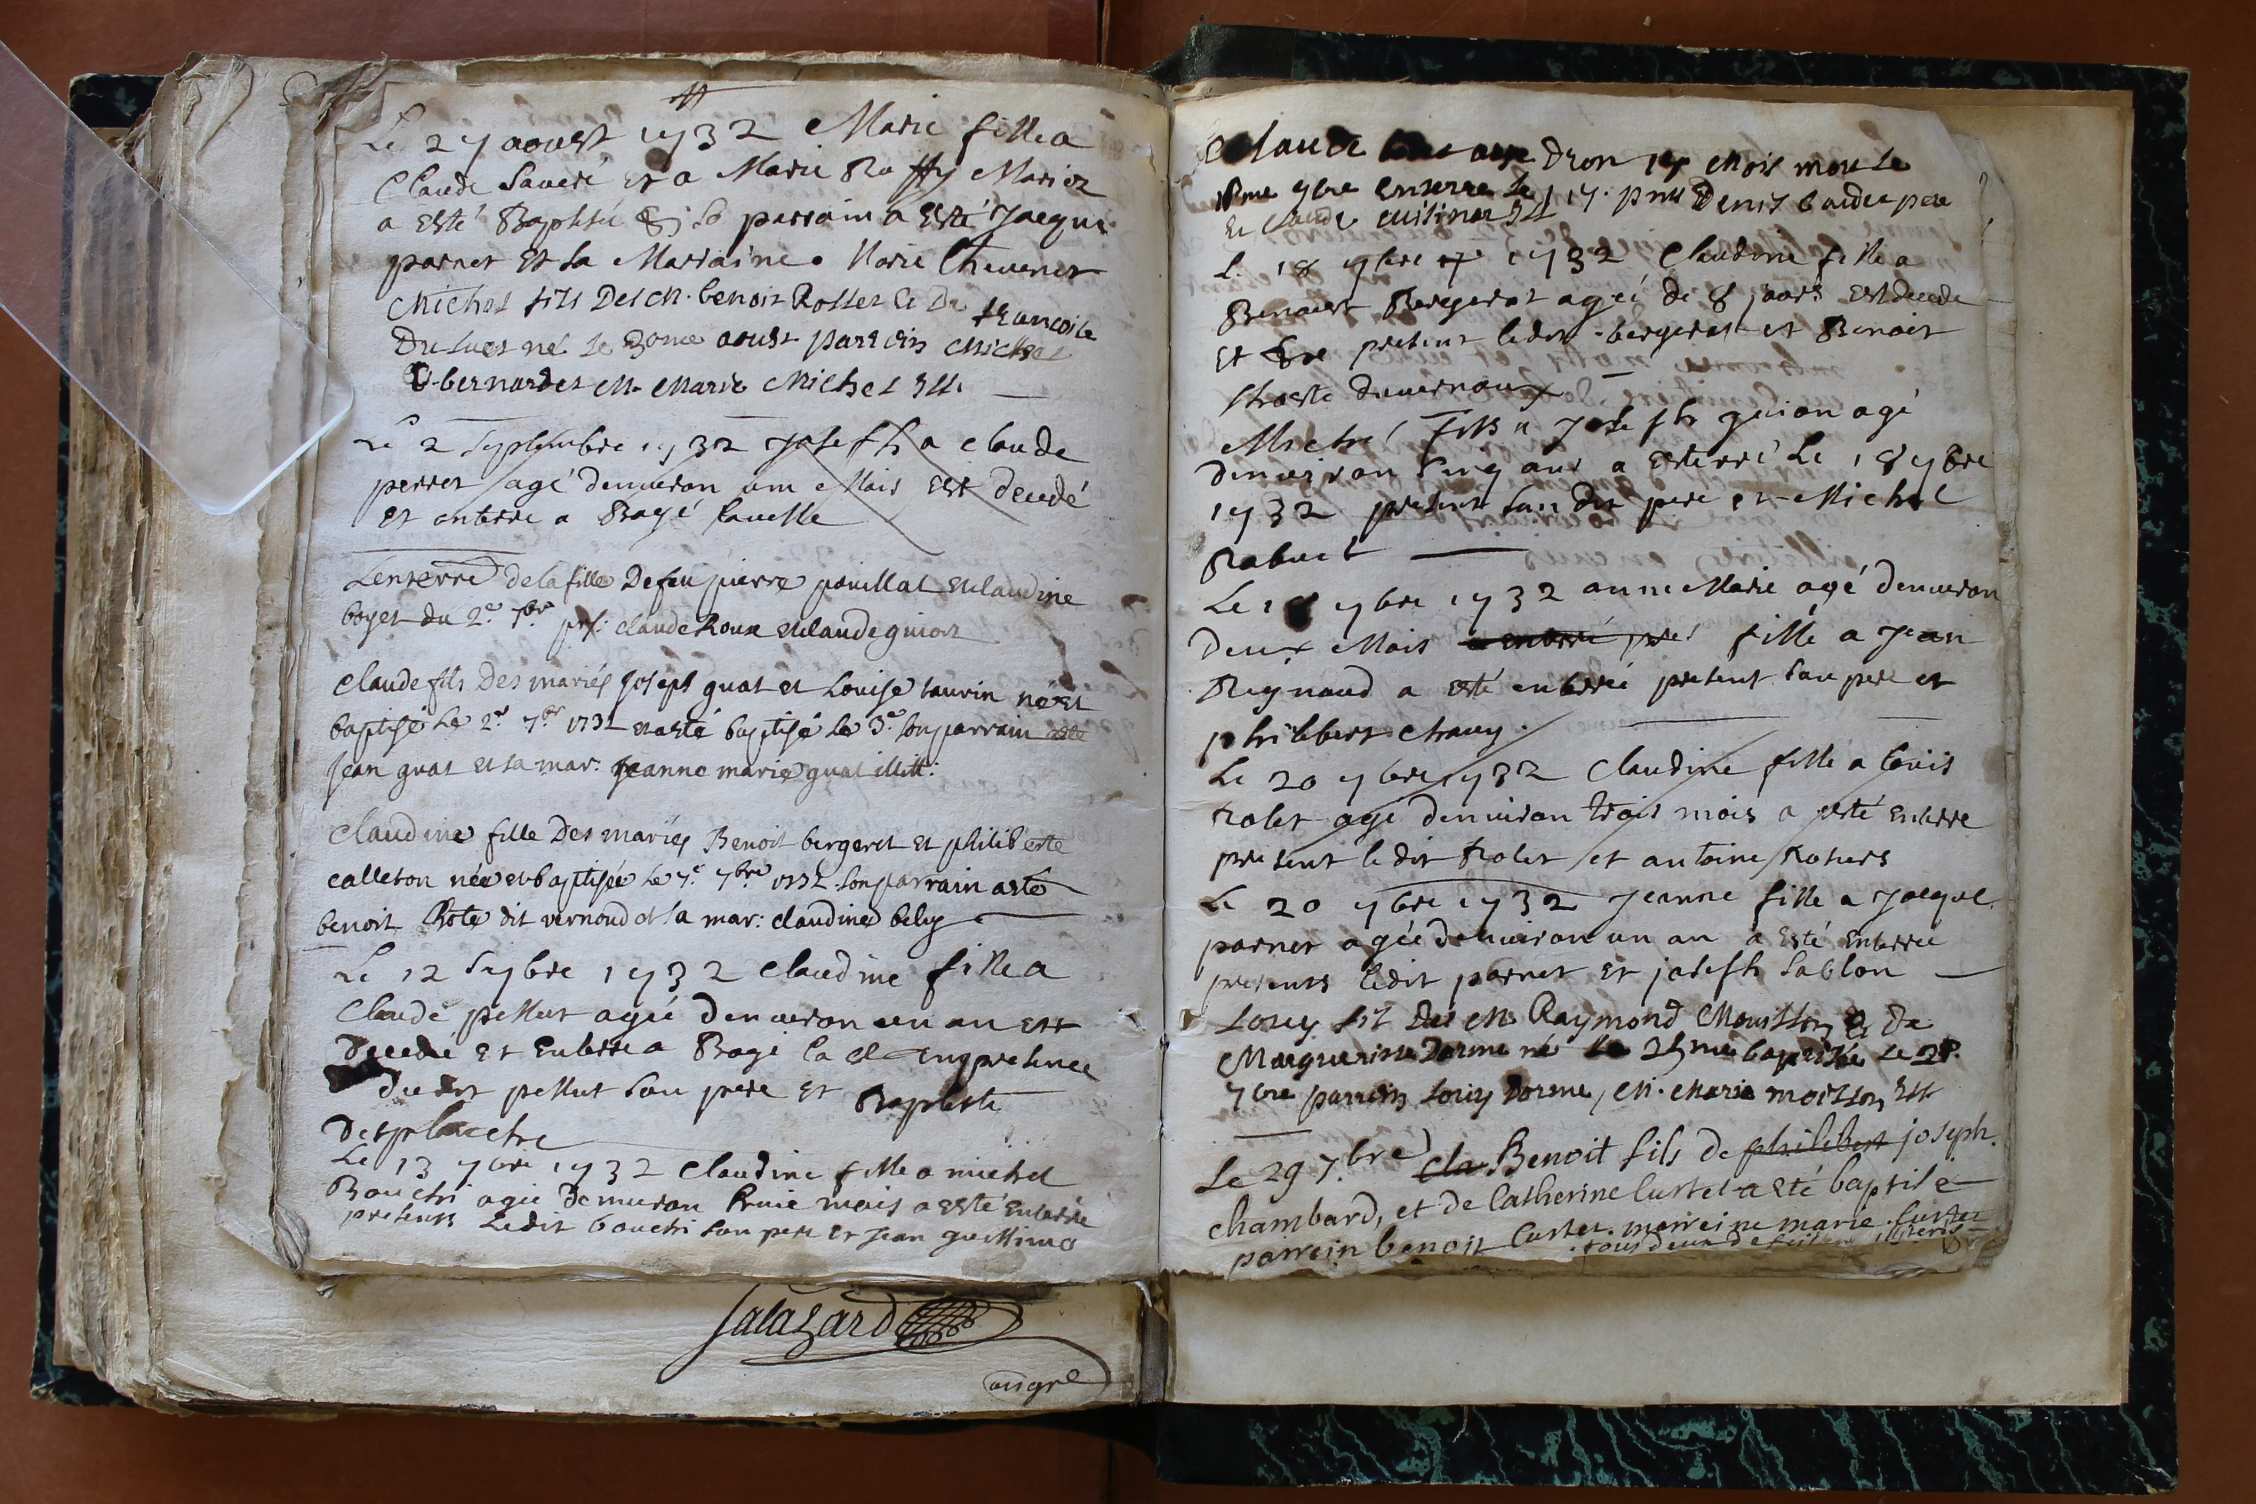 Le 27 aoust 1732 Marie fille a
Claude Saveré et a Marie Raffy Mariez
a esté Baptisé & le parrain a esté Jacque
parnet et la Marraine Marie Thevenet
Michel fils Des M. benoit Rollet & De francoise
Du luet né le 30me aoust parrein Michel
bernardet M. Marie Michel Ill.
Le 2 Septembre 1732 Joseph a claude
perret agé denviron un Mois est decedé
et enterre a Bagé lavelle
Lenterré de la fille De feu pierre pouillat et claudine
boyet du 2e 7bre prs: claude Roux et claude guiot
claude fils Des mariés Joseph guat et Louise taurin né et
baptisé Le 2e 7bre 1732 et a esté baptisé le 3e son parrain esté
Jean guat et sa mar: jeanne marie guat illitt:
Claudine fille Des mariés Benoit bergeret et philiberte
calleton née et baptisée le 7e 7bre 1732 son parrain a esté
benoit Rote dit vernoud et sa mar: claudine bely
Le 12 Sepbre 1732 Claudine fille a
Claude pellut agée denviron un an est
Decede et enterre a Bage la en presence
du dit pellut son pere et Baptiste
Desplanche
Le 13 7bre 1732 Claudine fille a michel
Bouchi agée denviron mois a esté enterré
presents Ledit bouchi son pere et Jean
Salazard
Claude agé Dron 15 Mois mou le
16me 7bre enterre le 17. pnts Denis baudu pere
Et Claude cuisiner Ill
L. 18 7bre 1732 Claudine fille a
Benoist Bergeret agée de 8 jours est decede
et present ledit bergeret et Benoit
duvernoux
Michel fils a Joseph guion agé
denviron Cinq ans a enterré Le 18 7bre
1732 present son dit pere et Michel
Rabuel
Le 18 7bre 1732 anne Marie agé denviron
Deux Mois enterré fille a Jean
Reynaud a esté enterrée present son pere et
philibert Chavy.
Le 20 7bre 1732 Claudine fille a louis
rolet agé denviron trois mois a esté enterre
present ledit Rolet et antoine
Le 20 7bre 1732 Jeanne fille a Jacque
parnet agée denviron un an a esté enterrée
presents ledit parnet et joseph Sablon
Louy fil des M Raymond Moisson & De
Marguerite Dorme né le 25me baptisée le 28
7bre parrein Louy Dorme, M. Marie moisson Ill
Le 29 7.bre cla Benoit fils de philibert joseph.
chambard, et de Catherine Curtet a eté baptisé
parrein benoit Curtet. marreine marie Curtet
tous deux de illiterés